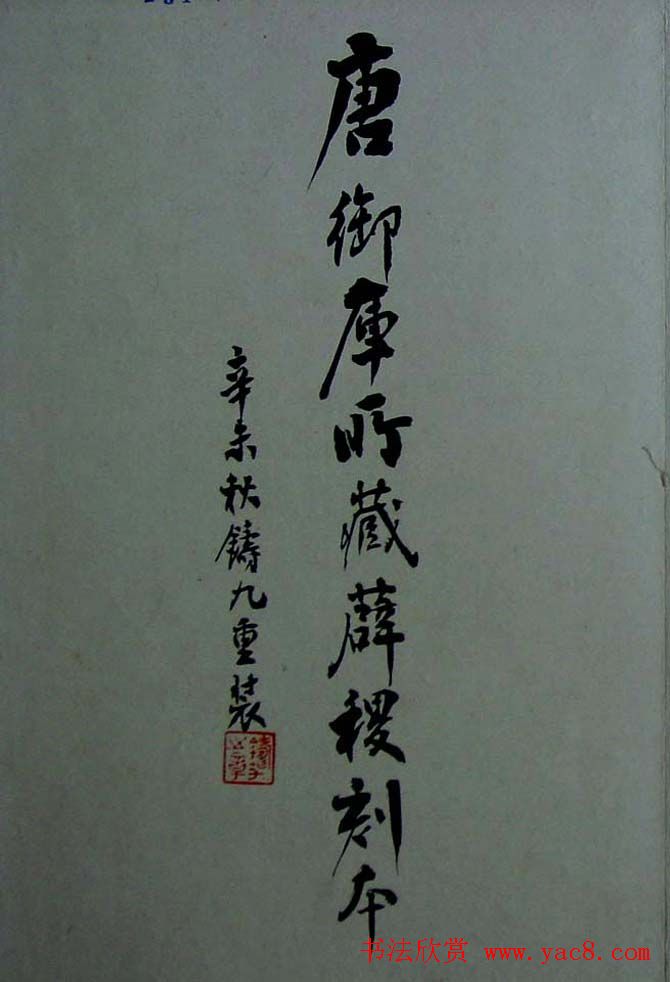 唐御庫所藏薛稷刻本
辛未秋鑄九重装
书法欣赏 www.yac8.com